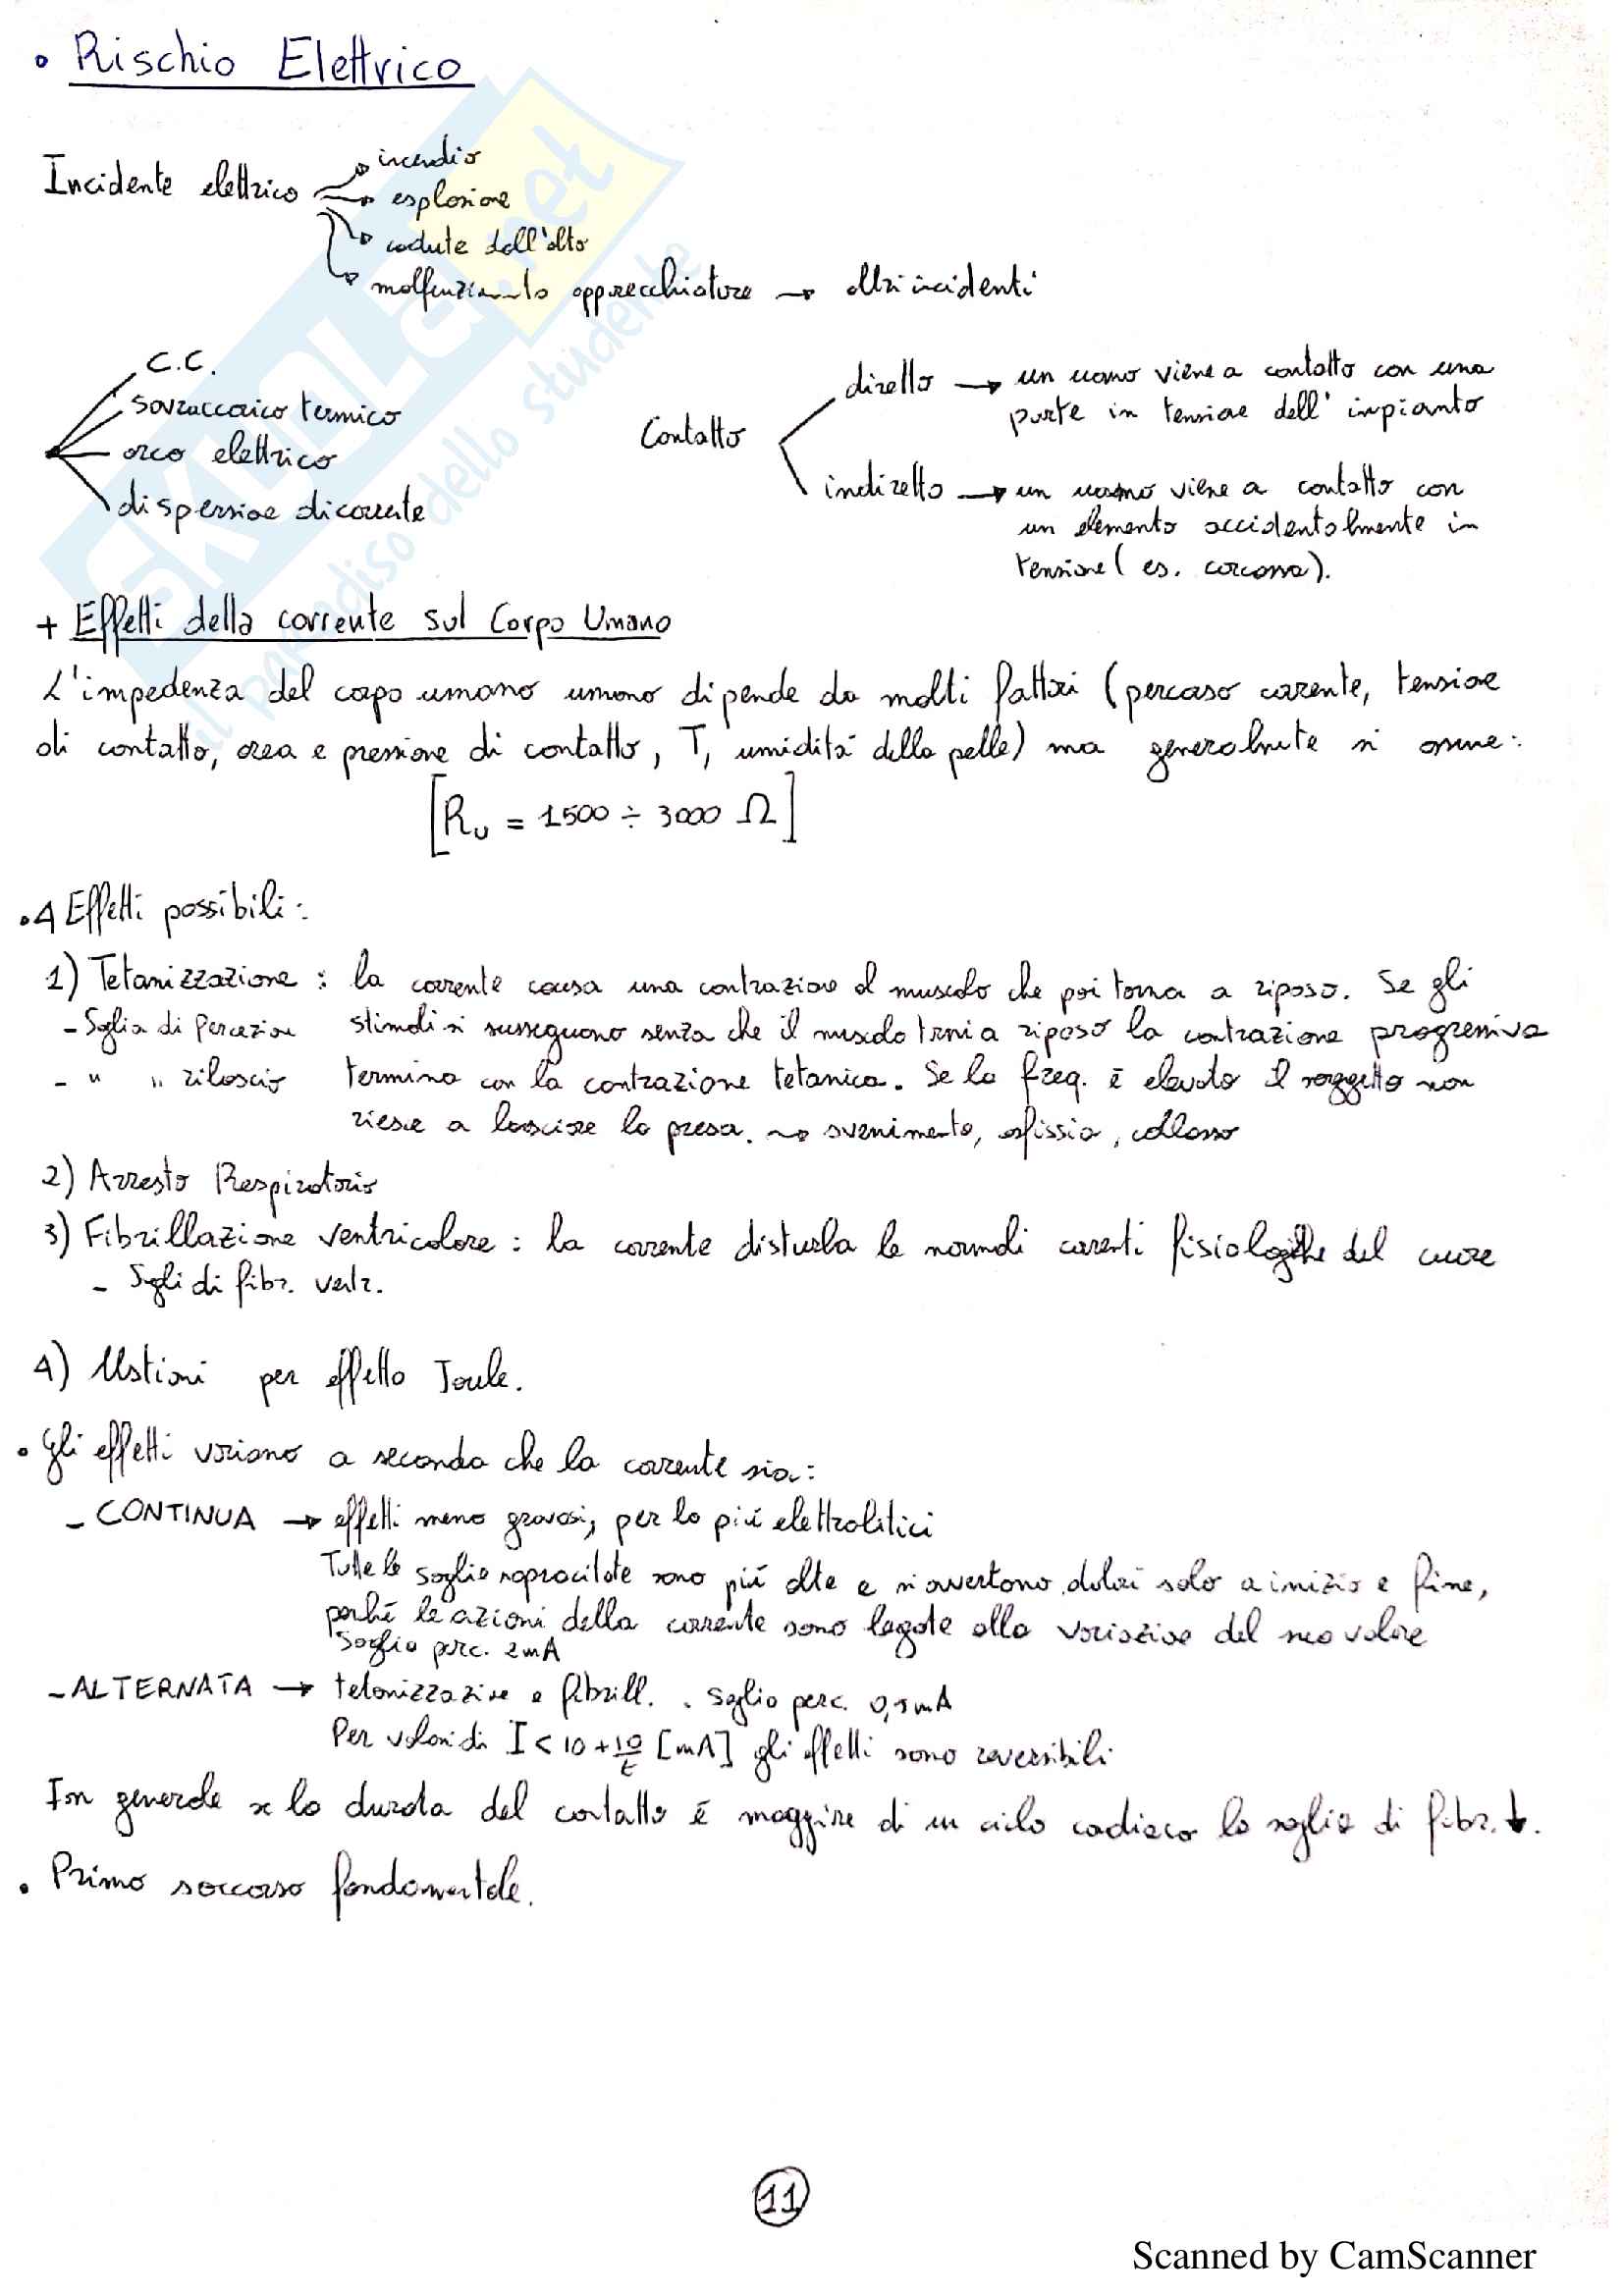 • Rischio Elettrico
Incidente elettrico → incendio
→ esplosione
→ cadute dall'alto
→ malfunziamento apparecchiature → altri incidenti
C.C.
sovraccarico termico
arco elettrico
dispersione di corrente
Contatto
diretto → un uomo viene a contatto con una
parte in tensione dell'impianto
indiretto → un uomo viene a contatto con
un elemento accidentalmente in
tensione (es. carcassa).
+ Effetti della corrente sul Corpo Umano
L'impedenza del corpo umano umano dipende da molti fattori (percorso corrente, tensione
di contatto, area e pressione di contatto, T, umidità della pelle) ma generalmente si assume:
[Ru = 1500 ÷ 3000 Ω]
• 4 Effetti possibili:
1) Tetanizzazione : la corrente causa una contrazione al muscolo che poi torna a riposo. Se gli
- Soglia di Percezione stimoli si susseguono senza che il muscolo torni a riposo la contrazione progressiva
- " " rilascio termina con la contrazione tetanica. Se la freq. è elevata il soggetto non
riesce a lasciare la presa. → svenimento, asfissia, collasso
2) Arresto Respiratorio
3) Fibrillazione ventricolare : la corrente disturba le normali correnti fisiologiche del cuore
- Soglia di fibr. ventr.
4) Ustioni per effetto Joule.
• Gli effetti variano a seconda che la corrente sia:
- CONTINUA → effetti meno gravosi, per lo più elettrolitici
Tutte le soglie sopracitate sono più alte e si avvertono dolori solo a inizio e fine,
perché le azioni della corrente sono legate alla variazione del suo valore
Soglia perc. 2mA
- ALTERNATA → tetanizzazione e fibrill. . Soglia perc. 0,5mA
Per valori di I < 10 + 10/t [mA] gli effetti sono reversibili
In generale se la durata del contatto è maggiore di un ciclo cardiaco la soglia di fibr. ↓.
• Primo soccorso fondamentale.
11
Scanned by CamScanner
SKUOLA.net
il paradiso dello studente